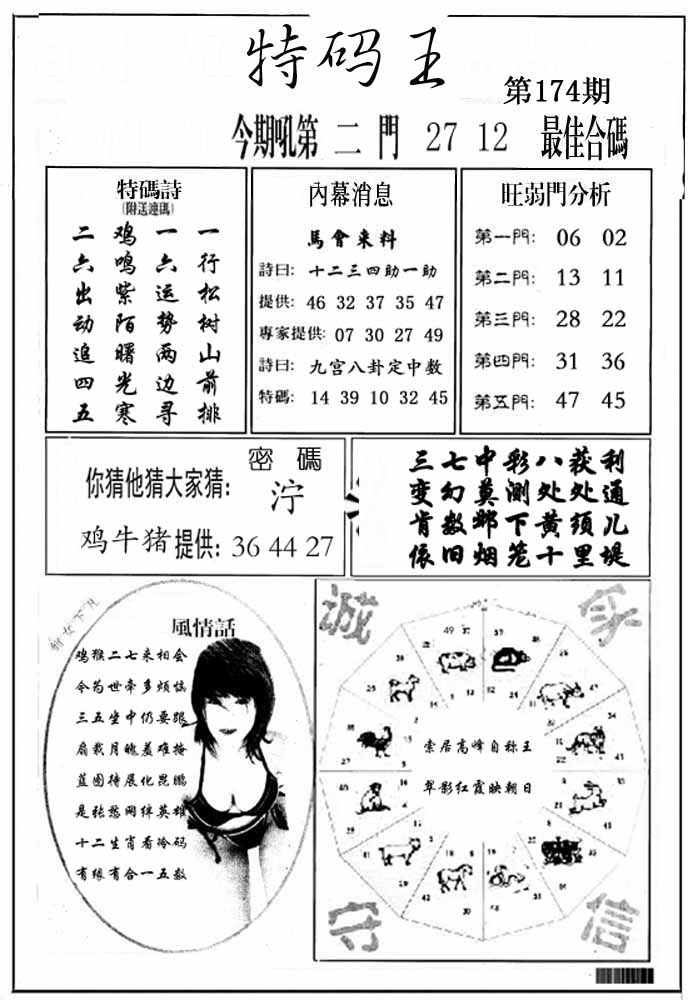 特码王
第174期
今期吼第 二 門 27 12 最佳合碼
特碼詩
(附送連碼)
一行松树山前排
一六运势两边寻
鸡鸣紫陌曙光寒
二六出动追四五
內幕消息
馬會来料
詩曰: 十二三四助一助
提供: 46 32 37 35 47
專家提供: 07 30 27 49
詩曰: 九宫八卦定中数
特碼: 14 39 10 32 45
旺弱門分析
第一門: 06 02
第二門: 13 11
第三門: 28 22
第四門: 31 36
第五門: 47 45
密碼
你猜他猜大家猜: 泞
鸡牛猪提供: 36 44 27
三七中彩八获利
变幻莫测处处通
肯数邺下黄须儿
依旧烟笼十里堤
仙女下凡
風情話
鸡猴二七来相会
令芶世牵多烦恼
三五坐中仍要跟
扇裁月魄羞难掩
蓝图待展化昆鹏
是张愁网绊英雄
十二生肖看冷码
有缘有合一五数
诚
守
信
索居高峰自称王
翠影红霞映朝日